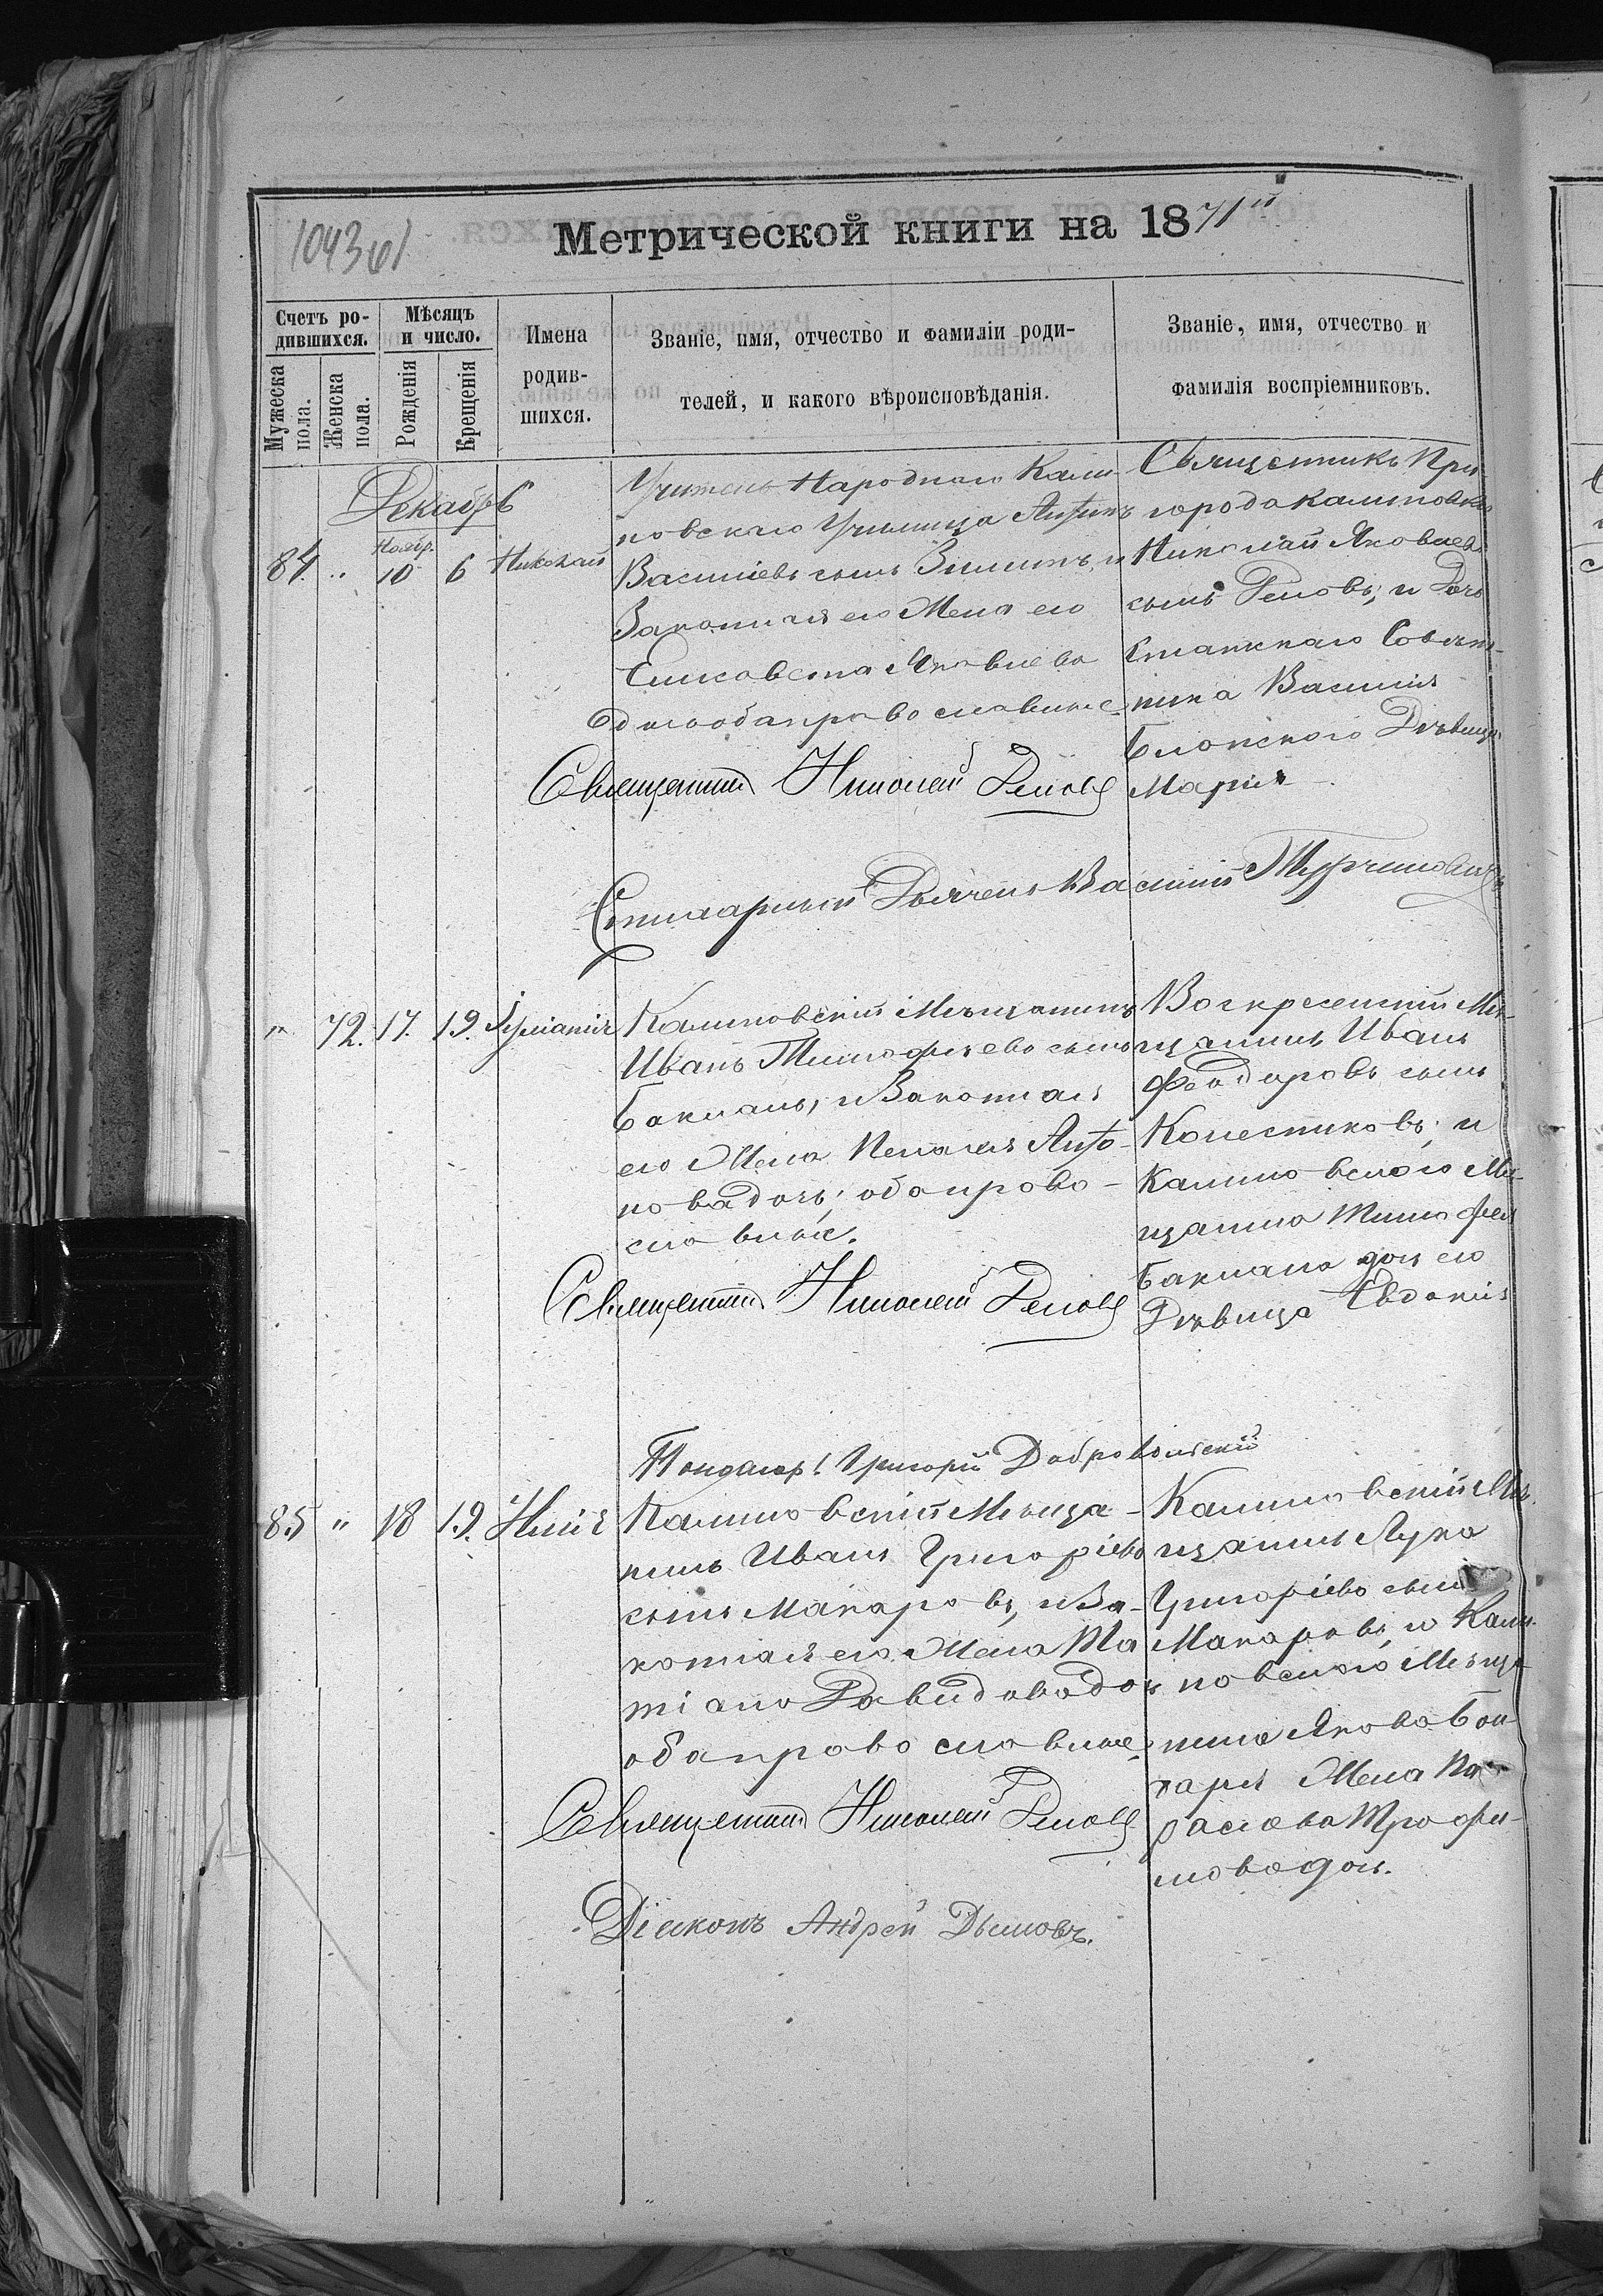 104361
Метрической книги на 1871й
Счетъ ро-
дившихся.
Мужеска пола.
Женска пола.
Мѣсяцъ и число.
Рожденія
Крещенія
Имена родив-
шихся.
Званіе, имя, отчество и фамиліи роди-
телей, и какого вѣроисповѣданія.
Званіе, имя, отчество и
фамилія воспріемниковъ.
Декабрь
84. " Ноябр. 10 6 Николай
Учитель Народнаго Кали-
новскаго Училища Антинъ
Василіевъ сынъ Зиминъ, и
Законная его Жена его
Елисавета Яковлева
обаправославные.
Священникъ Николай Реповъ
Священникъ При
города Калиновки
Николай Яковлевъ
сынъ Реповъ; и Дочь
Статскаго Совѣт-
ника Василія
Блонского Дѣвица
Марія
Василій
" 72. 17. 19. Іуліанія
Калиновскій Мѣщанинъ
Иванъ Тимофѣевъ сынъ
Бакланъ, и Законная
его Жена Пелагея Анто-
нова дочь; оба право-
славные.
Священникъ Николай Реповъ
Воскресенскій Мѣ-
щанинъ Иванъ
Феодоровъ сынъ
Колесниковъ; и
Калиновского Мѣ-
щанина Тимофея
Баклана дочь его
Дѣвица Евдокія
Пономарь Григорій Добровольскій
85 " 18 19. Илія
Калиновскій Мѣща-
нинъ Иванъ Григоріевъ
сынъ Макаровъ, и За-
конная его Жена Та
тіана Давидова дочь
оба православные.
Священникъ Николай Реповъ
Калиновскій Мѣ-
щанинъ Лука
Григоріевъ сынъ
Макаровъ, и Кали-
новского Мѣща-
нина Якова Бон-
даря Жена Па-
раскева Трофи-
мова дочь.
Діаконъ Андрей Дымовъ.